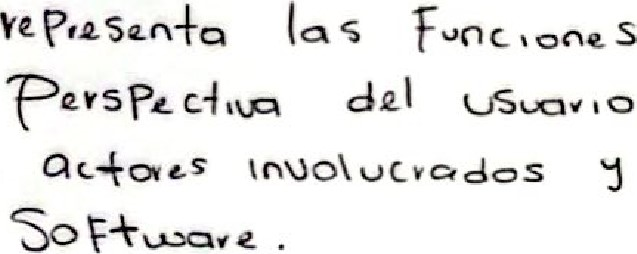 representa las Funciones
Perspectiva del usuario
actores involucrados y
Software.